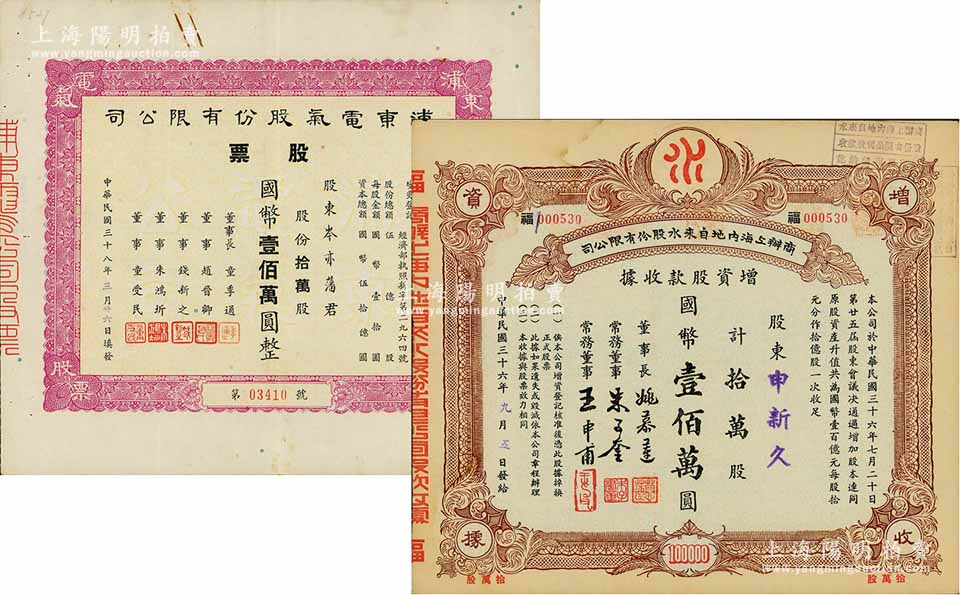 上海陽明拍賣
www.yangmingauction.com
浦東
電氣
股
票
浦東電氣股份有限公司
股票
經濟部執照新字第二九六四號
股份總額 伍億股
每股金額 國幣壹拾圓
資本總額 國幣伍拾億圓
股東岑亦蕃君
股份拾萬股
國幣壹佰萬圓整
董事長 童季通
董事 趙晉卿
董事 錢新之
董事 朱鴻圻
董事 童受民
中華民國三十八年三月廿六日填發
第 03410 號
增
資
收
據
福 000530
福 000530
商辦上海內地自來水股份有限公司
增資股款收據
本公司於中華民國三十六年七月二十日
第廿五屆股東會議決通過增加股本連同
原股資產升值共為國幣壹百億元每股拾
元分作拾億股一次收足
股東申新久
計拾萬股
國幣壹佰萬圓
董事長 姚慕蓮
常務董事 朱子奎
常務董事 王申甫
俟本公司增資登記核准後憑此股據掉換
正式股票
此據如果遺失或毀滅依本公司章程辦理
本收據與股票效力相同
中華民國三十六年九月五日發給
100000
拾萬股
拾萬股
上海陽明拍賣
www.yangmingauction.com